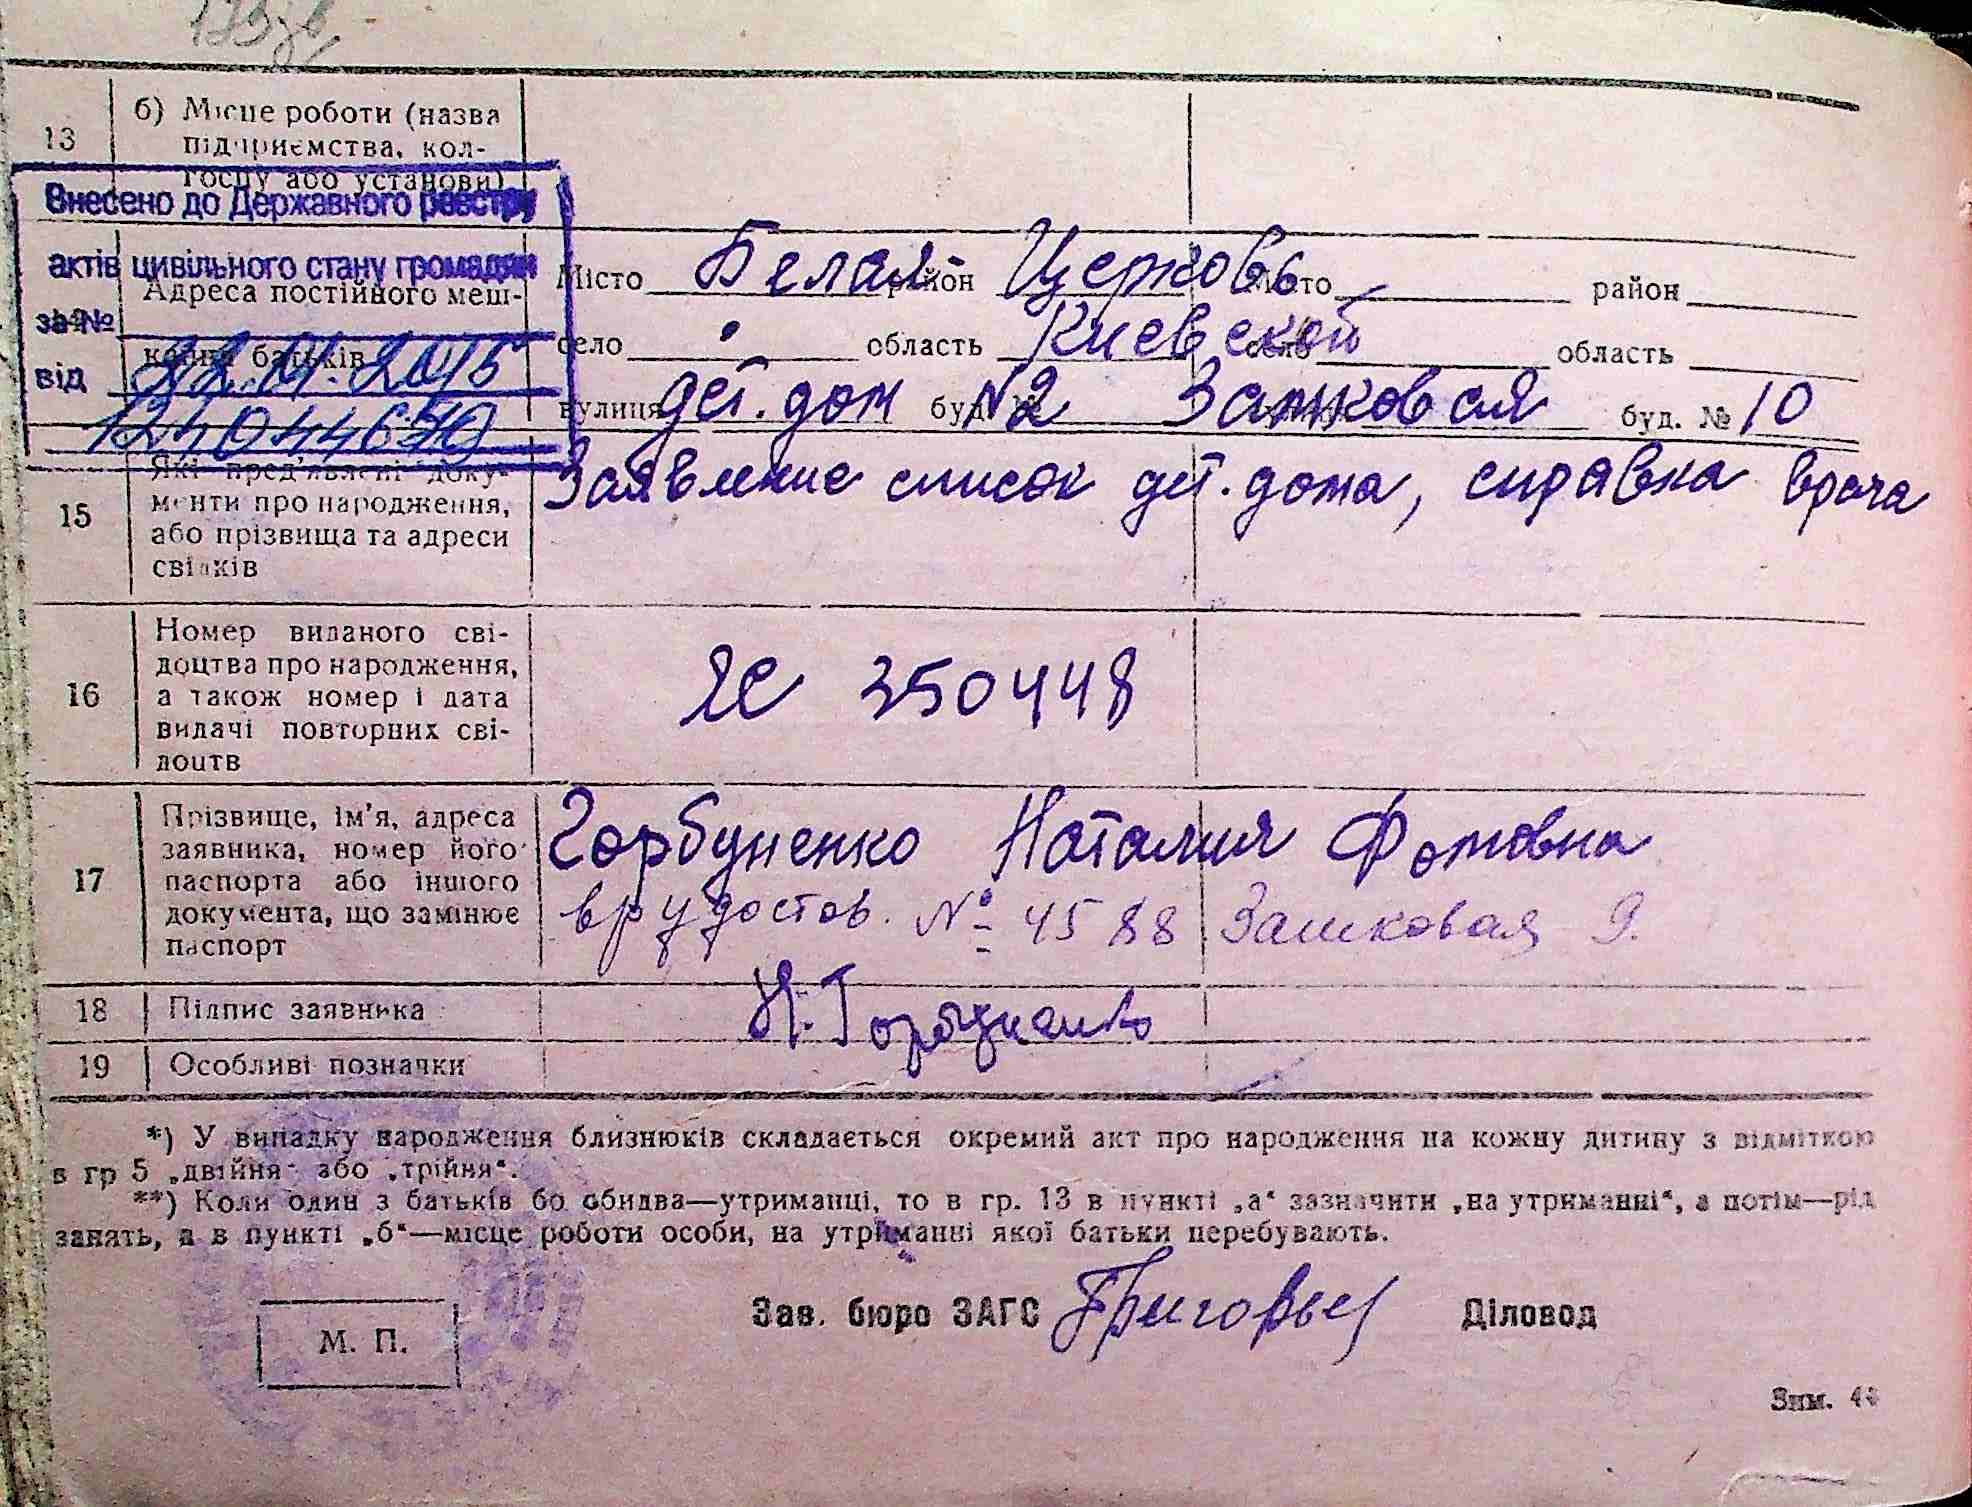 13
б) Місце роботи (назва
підприємства, кол-
госпу або установи)
Внесено до Державного реєстру
актів цивільного стану громадян
за №
від 22.01.2015
Адреса постійного меш-
кання батьків
Місто Белая район Церковь Місто район
село область Киевской село область
вулиця дет. дом буд. № N2 Замковая буд. № 10
15
Які пред'явлені доку-
менти про народження,
або прізвища та адреси
свідків
Заявление список дет. дома, справка врача
16
Номер виданого сві-
доцтва про народження,
а також номер і дата
видачі повторних сві-
доцтв
ЯС 350448
17
Прізвище, ім'я, адреса
заявника, номер його
паспорта або іншого
документа, що замінює
паспорт
Горбуненко Наталия Фомовна
вр удостов. № 4588 Замковая 9.
18 Підпис заявника
Н. Горбуненко
19 Особливі позначки
*) У випадку народження близнюків складається окремий акт про народження на кожну дитину з відміткою
в гр 5 „двійня" або „трійня".
**) Коли один з батьків бо обидва—утриманці, то в гр. 13 в пункті „а" зазначити „на утриманні", а потім—рід
занять, а в пункті „б"—місце роботи особи, на утриманні якої батьки перебувають.
Зав. бюро ЗАГС Діловод
М. П.